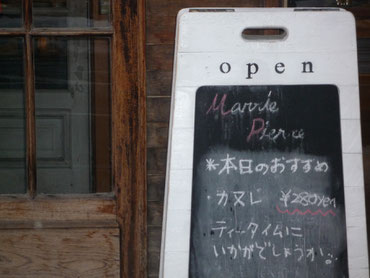 open
Marrie
Pierre
*本日のおすすめ
・カヌレ ¥280yen
ティータイムに
いかがでしょうか。